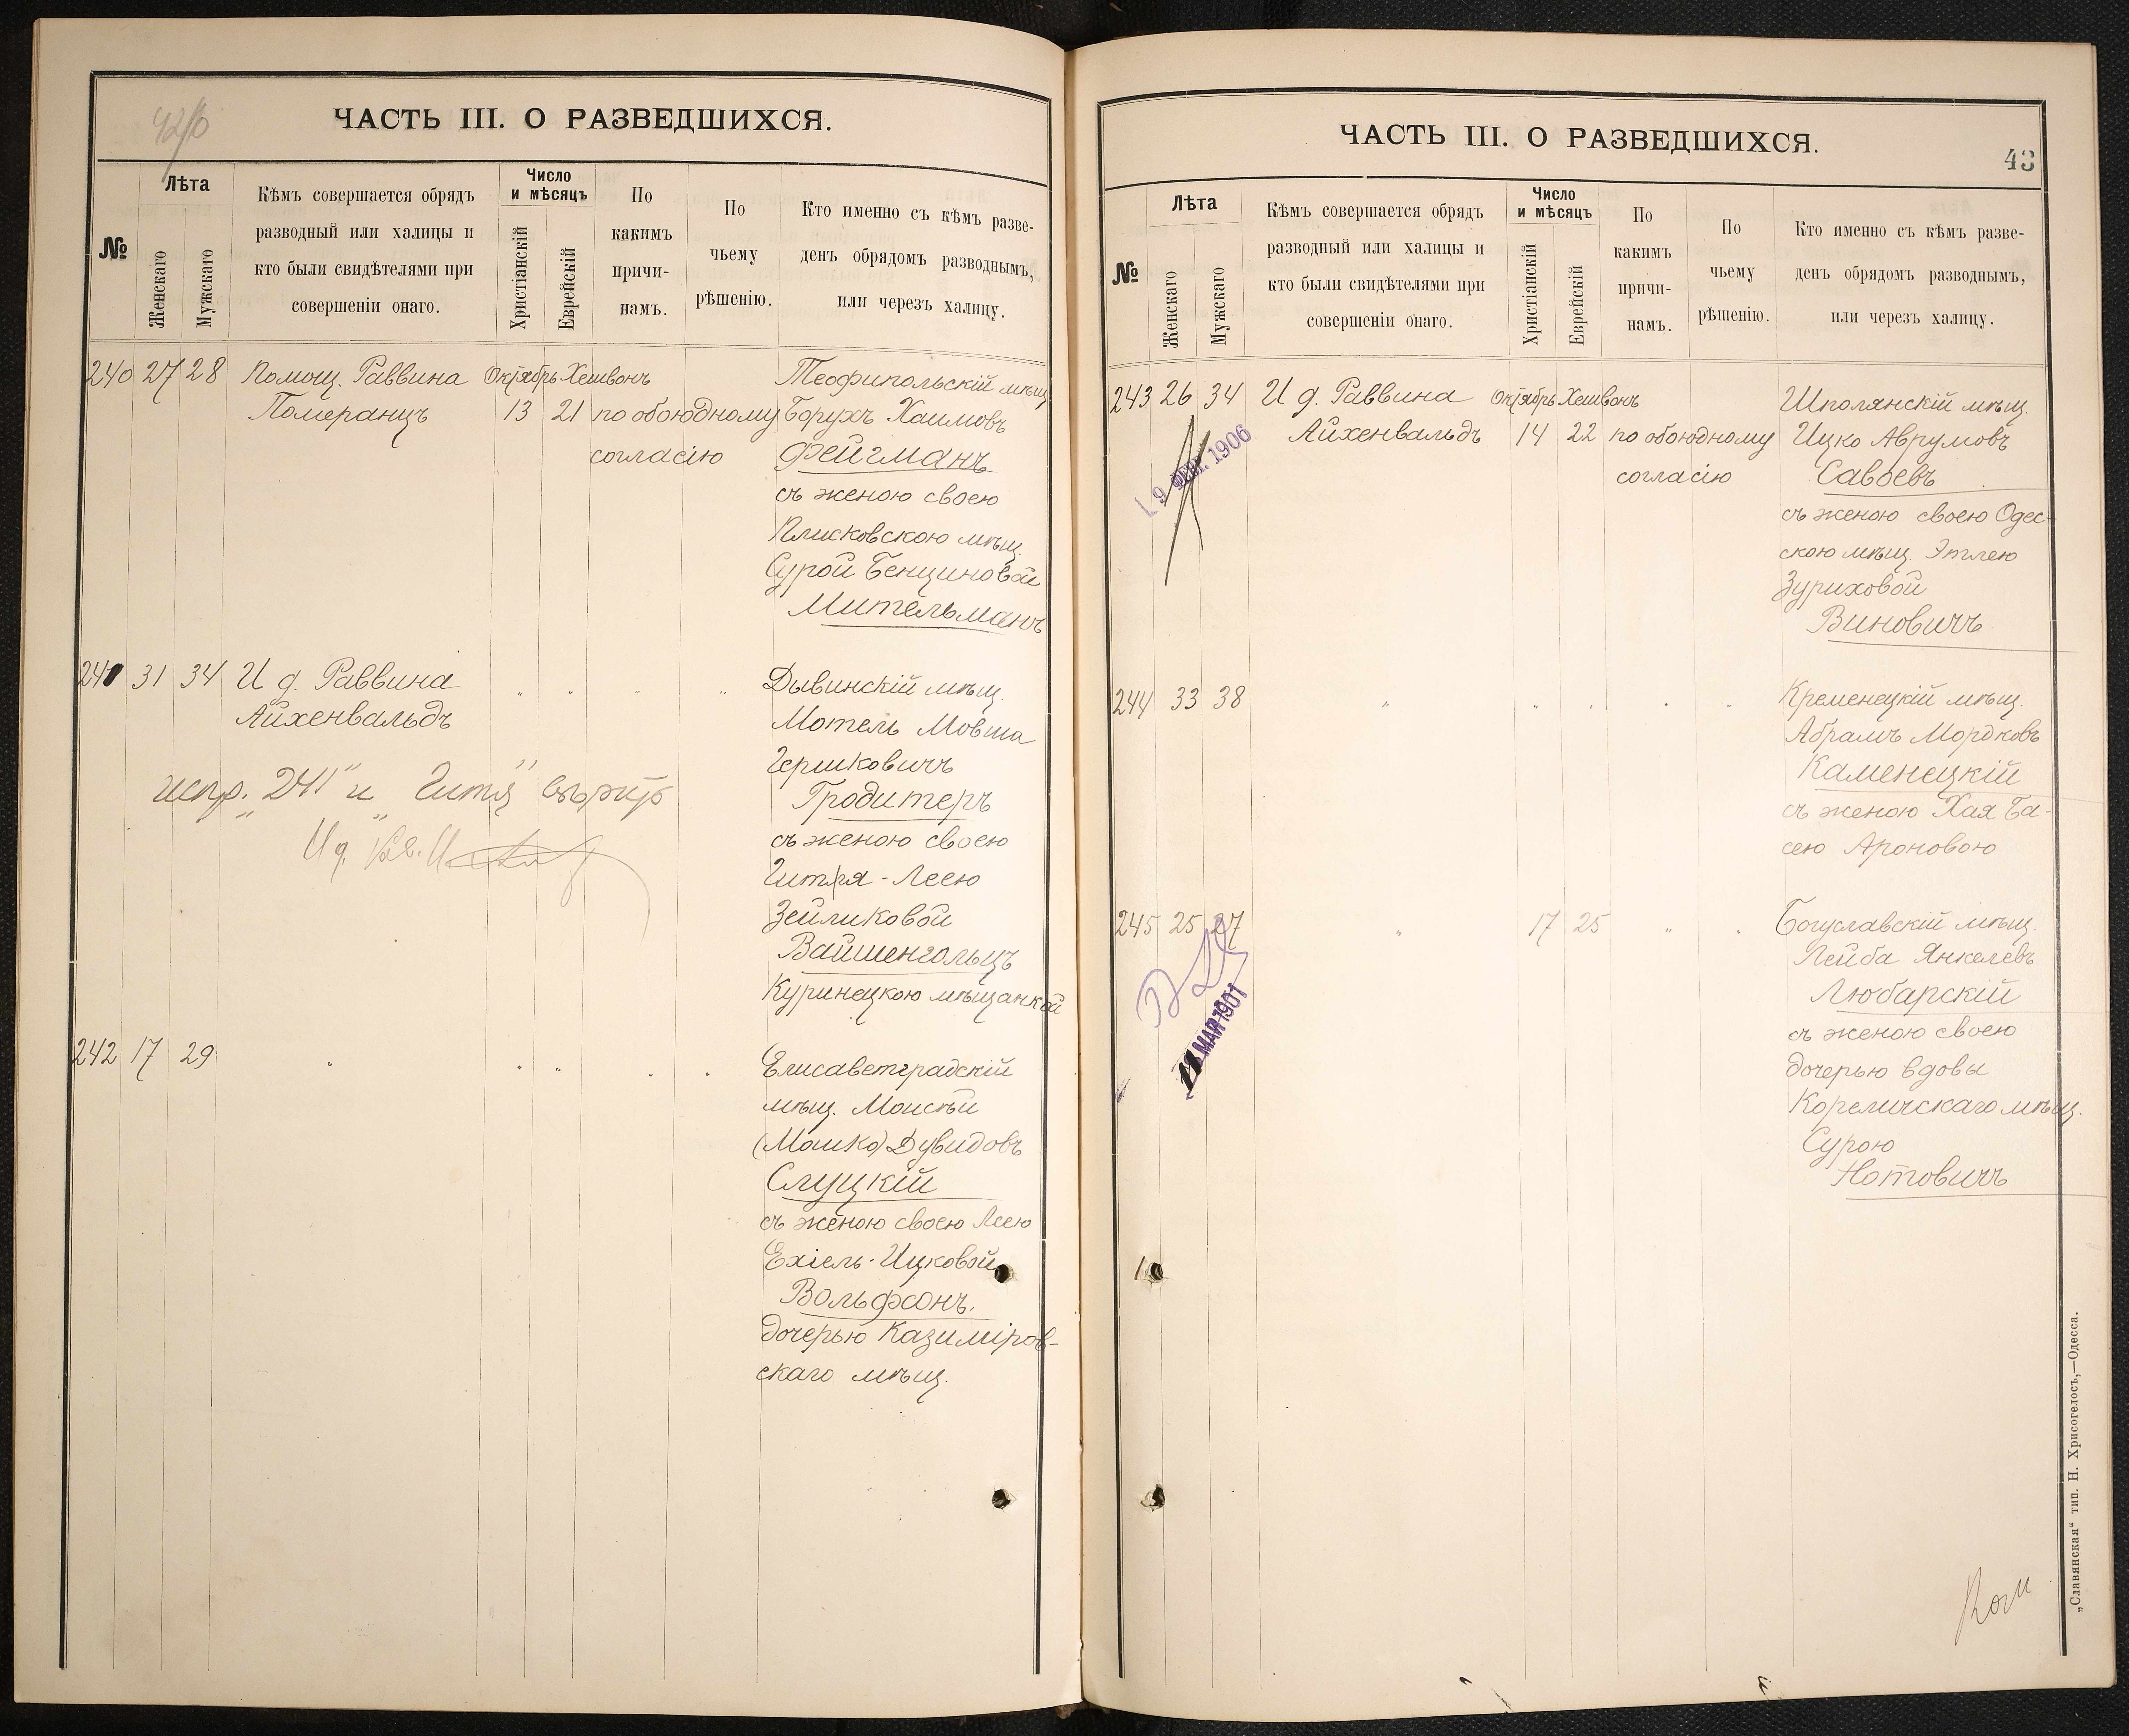 ЧАСТЬ III. О РАЗВЕДШИХСЯ.
№
Лѣта
Женскаго
Мужскаго
Кѣмъ совершается обрядъ
разводный или халицы и
кто были свидѣтелями при
совершеніи онаго.
Число
и мѣсяцъ
Христіанскій
Еврейскій
По
какимъ
причи-
намъ.
По
чьему
рѣшенію.
Кто именно съ кѣмъ разве-
денъ обрядомъ разводнымъ,
или черезъ халицу.
240 27 28 Помощ. Раввина Октябрь Хешвонъ Теофипольскій мѣщ.
Померанцъ 13 21 по обоюдному Борухъ Хаимовъ
согласію Фейгманъ
съ женою своею
Плисковскою мѣщ.
Сурой Бенционовой
Мительманъ
241 31 34 И д. Раввина " " " " Дывинскій мѣщ.
Айхенвальдъ Мотель Мовша
Гершковичъ
испр. "241" и "Гитя" вѣрно Гродитеръ
И д.
съ женою своею
Гитя-Леею
Зейликовой
Вайшенгольцъ
Куринецкою мѣщанкой
242 17 29 " " " " " Елисаветградскій
мѣщ. Моисѣй
(Мошко) Дувидовъ
Слуцкій
съ женою своею Леею
Ехіель-Ицковой
Вольфсонъ,
дочерью Казиміров-
скаго мѣщ.
ЧАСТЬ III. О РАЗВЕДШИХСЯ.
43
№
Лѣта
Женскаго
Мужскаго
Кѣмъ совершается обрядъ
разводный или халицы и
кто были свидѣтелями при
совершеніи онаго.
Число
и мѣсяцъ
Христіанскій
Еврейскій
По
какимъ
причи-
намъ.
По
чьему
рѣшенію.
Кто именно съ кѣмъ разве-
денъ обрядомъ разводнымъ,
или черезъ халицу.
243 26 34 И д. Раввина Октябрь Хешвонъ Шполянскій мѣщ.
Айхенвальдъ 14 22 по обоюдному Ицко Аврумовъ
согласію Савоевъ
9 ФЕВ. 1906
съ женою своею Одес-
скою мѣщ. Этлею
Зуриховой
Виновичъ
244 33 38 " " " " " Кременецкій мѣщ.
Абрамъ Мордковъ
Каменецкій
съ женою Хая Ба-
сею Ароновою
245 25 27 " 17 25 " " Богуславскій мѣщ.
Лейба Янкелевъ
Любарскій
МАР 1901
съ женою своею
дочерью вдовы
Кореличскаго мѣщ.
Сурою
Нотовичъ
„Славянская“ тип. Н. Хрисогелосъ,—Одесса.